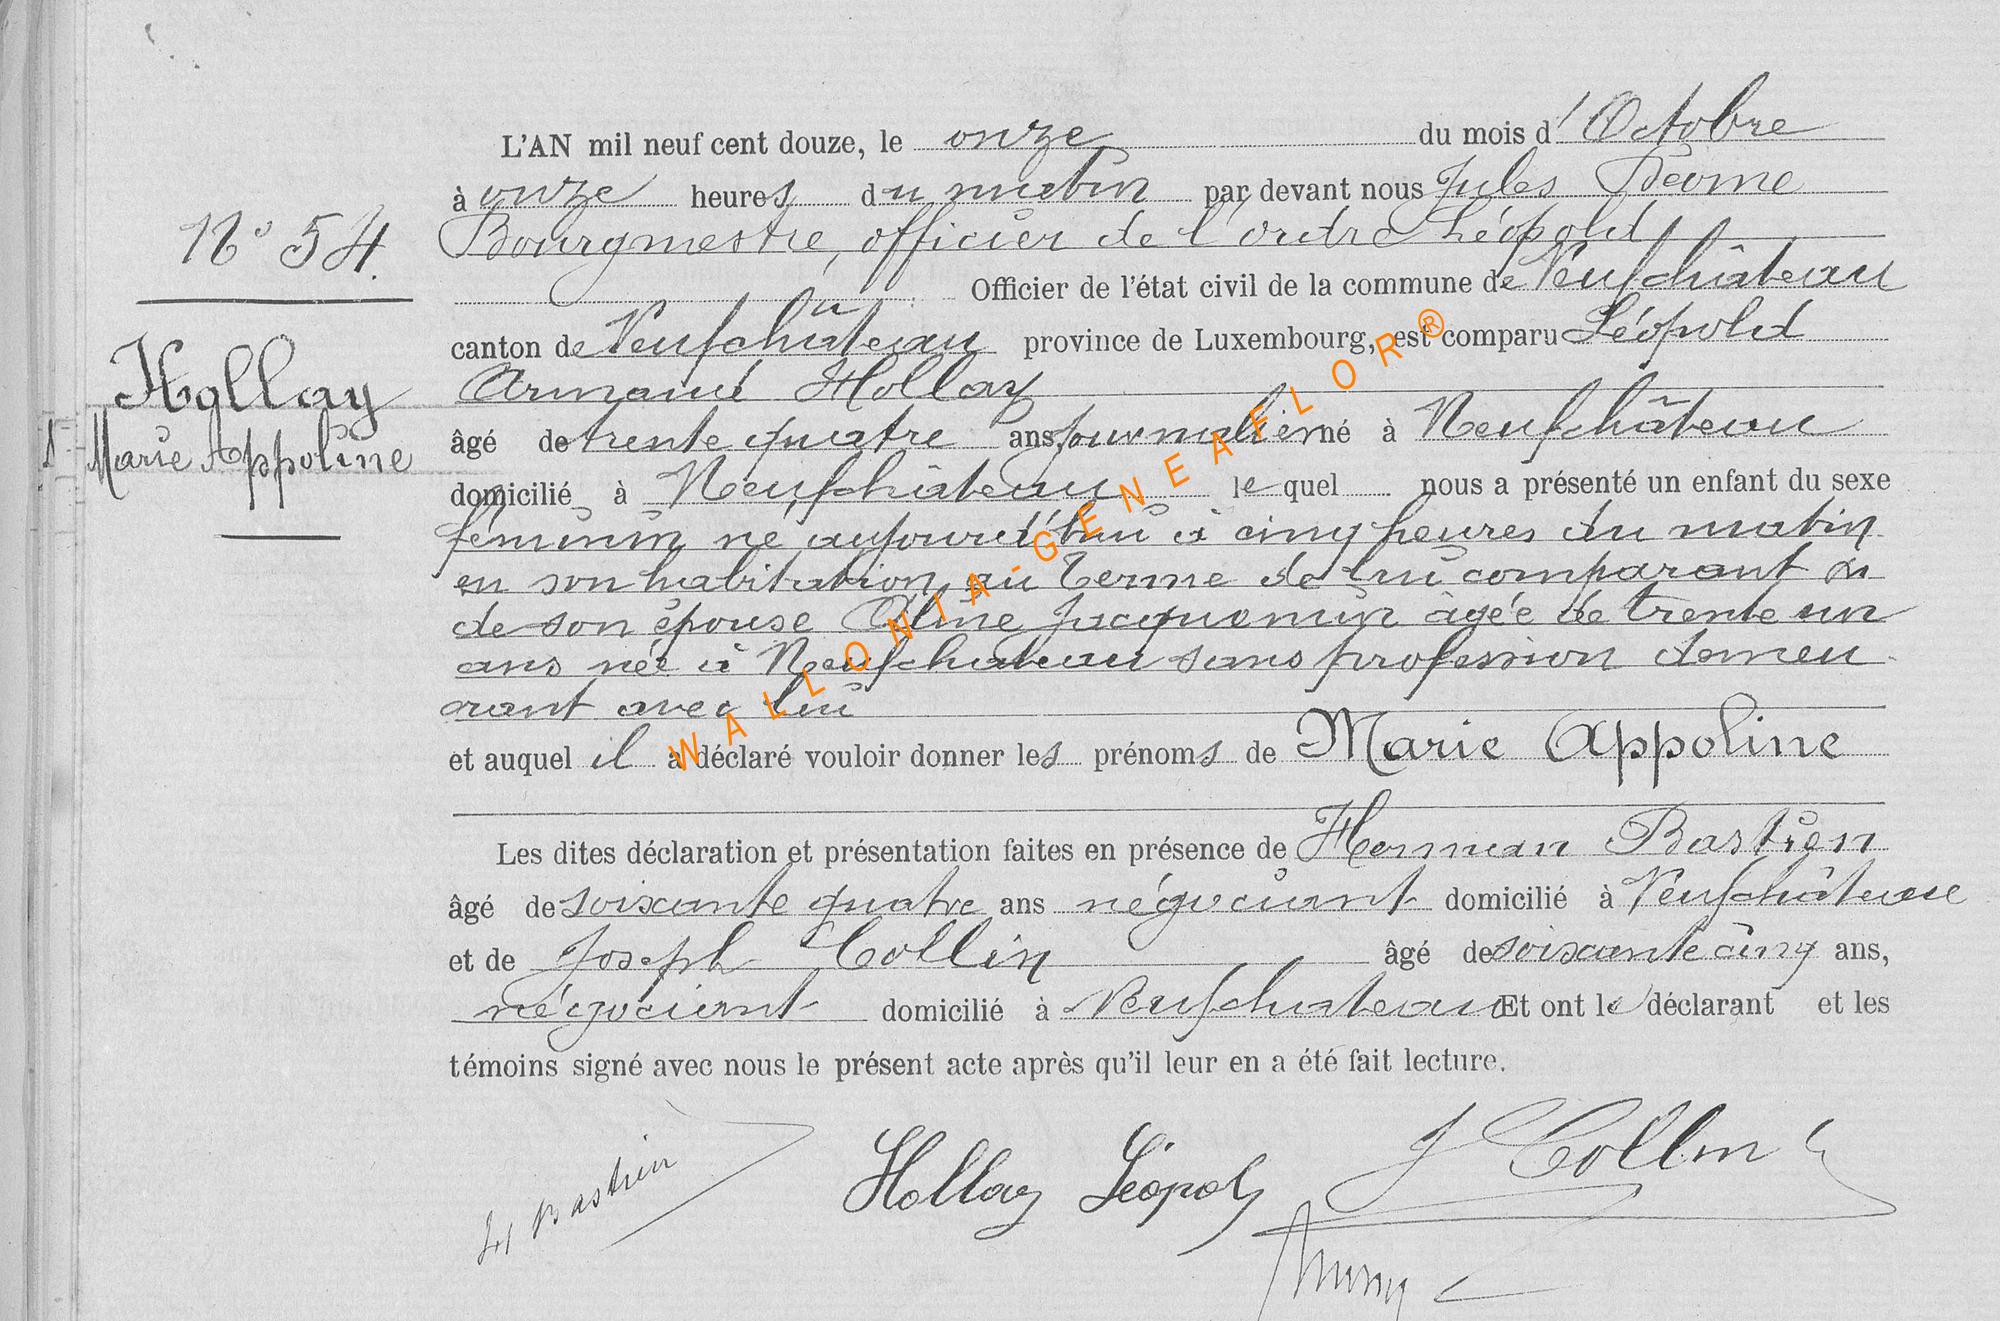 L'AN mil neuf cent douze, le onze du mois d'Octobre
à onze heures du matin par devant nous Jules
Bourgmestre, officier de l'ordre Léopold
N° 54.
Officier de l'état civil de la commune de Neufchâteau
canton de Neufchâteau province de Luxembourg, est comparu Léopold
Hollay
Armand Hollay
Marie Appoline
âgé de trente quatre ans, journalier né à Neufchâteau
domicilié à Neufchâteau lequel nous a présenté un enfant du sexe
féminin né aujourd'hui à cinq heures du matin
en son habitation, au Terme de lui comparant &
de son épouse Aline Jacquemin âgée de trente un
ans née à Neufchateau sans profession demeu
rant avec lui
et auquel il a déclaré vouloir donner les prénoms de Marie Appoline
Les dites déclaration et présentation faites en présence de Herman Bastien
âgé de soixante quatre ans négociant domicilié à Neufchâteau
et de Joseph Collin âgé de soixante cinq ans,
négociant domicilié à Neufchateau Et ont le déclarant et les
témoins signé avec nous le présent acte après qu'il leur en a été fait lecture.
H Bastien
Hollay Léopold
J Collin
WALLONIA-GENEAFLOR®